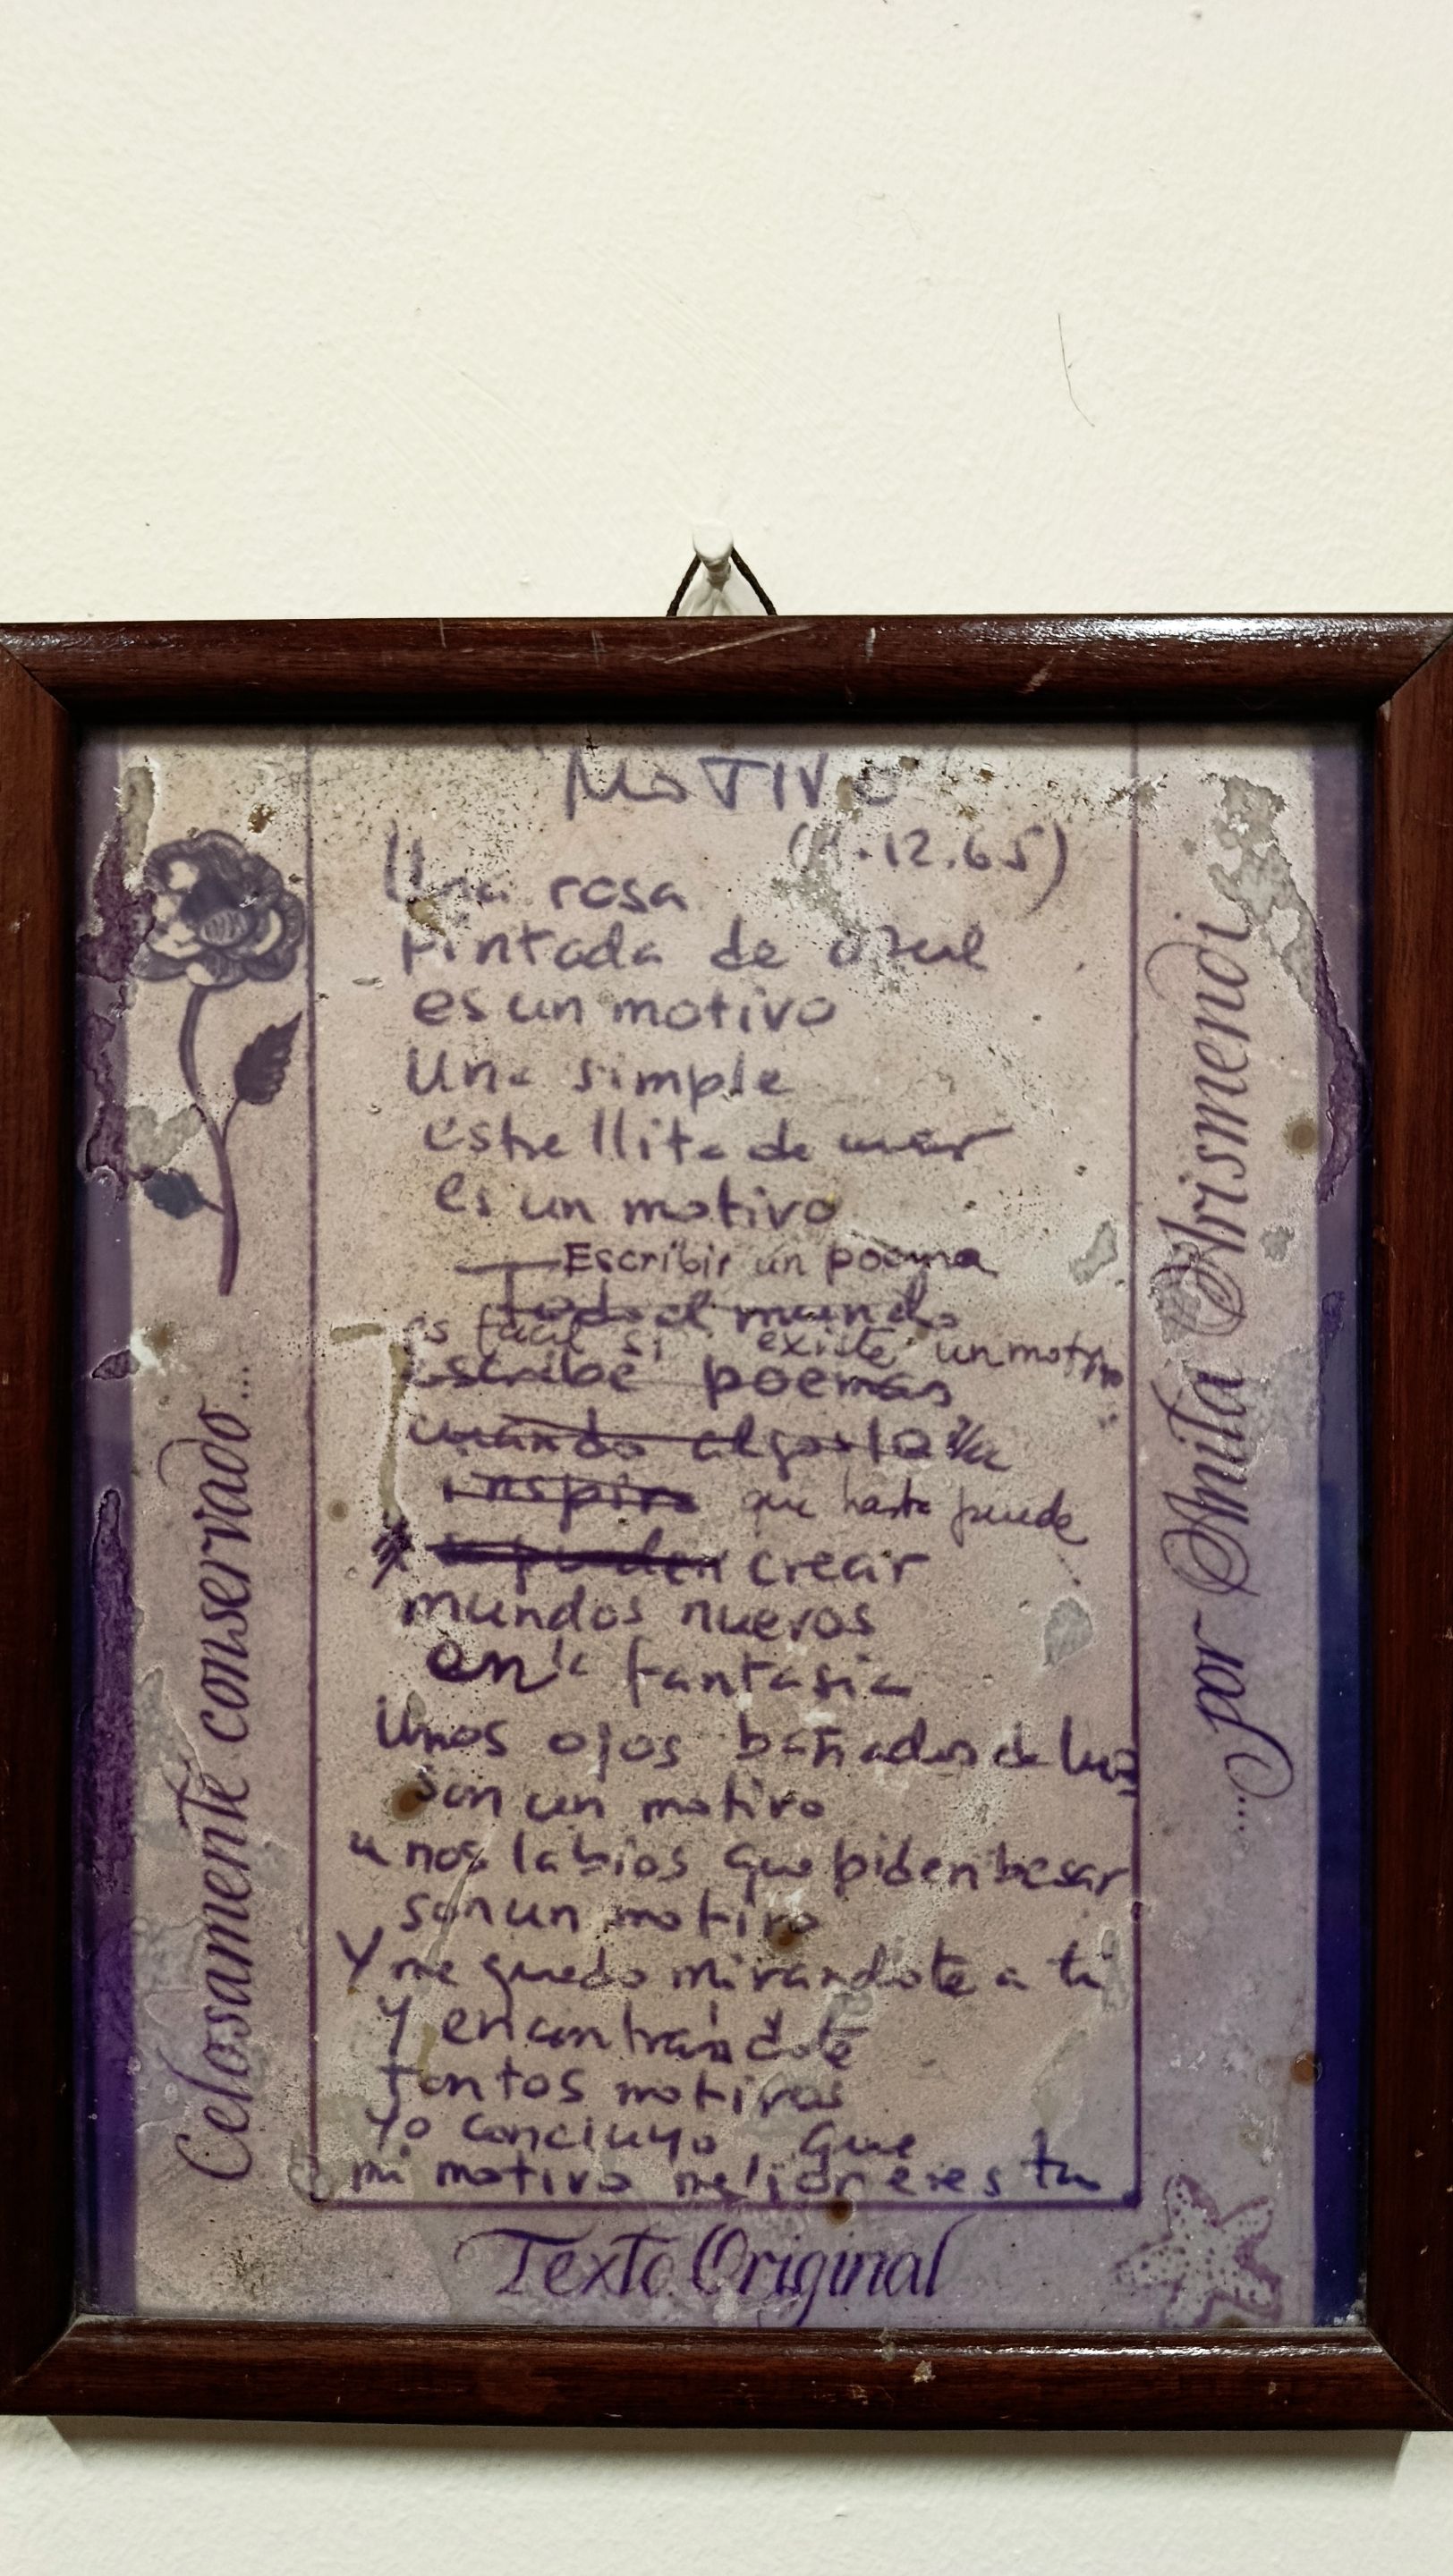 MOTIVO
.12.65)
Una rosa
Pintada de azul
es un motivo
Una simple
estrellita de mar
es un motivo
Escribir un poema
Todo el mundo
es facil si existe un motivo
escribe poemas
cuando algo
inspira que hasta puede
y pueden crear
mundos nuevos
en la fantasia
Unos ojos bañados de luz
son un motivo
unos labios que piden besar
son un motivo
Y me quedo mirandote a ti
y encontrándote
tantos motivos
yo concluyo, que
mi motivo mejor eres tu
Celosamente conservado...
...por Anita Arismendi
Texto Original